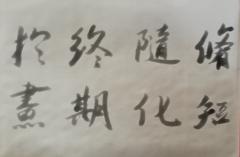 脩短
隨化
終期
於盡